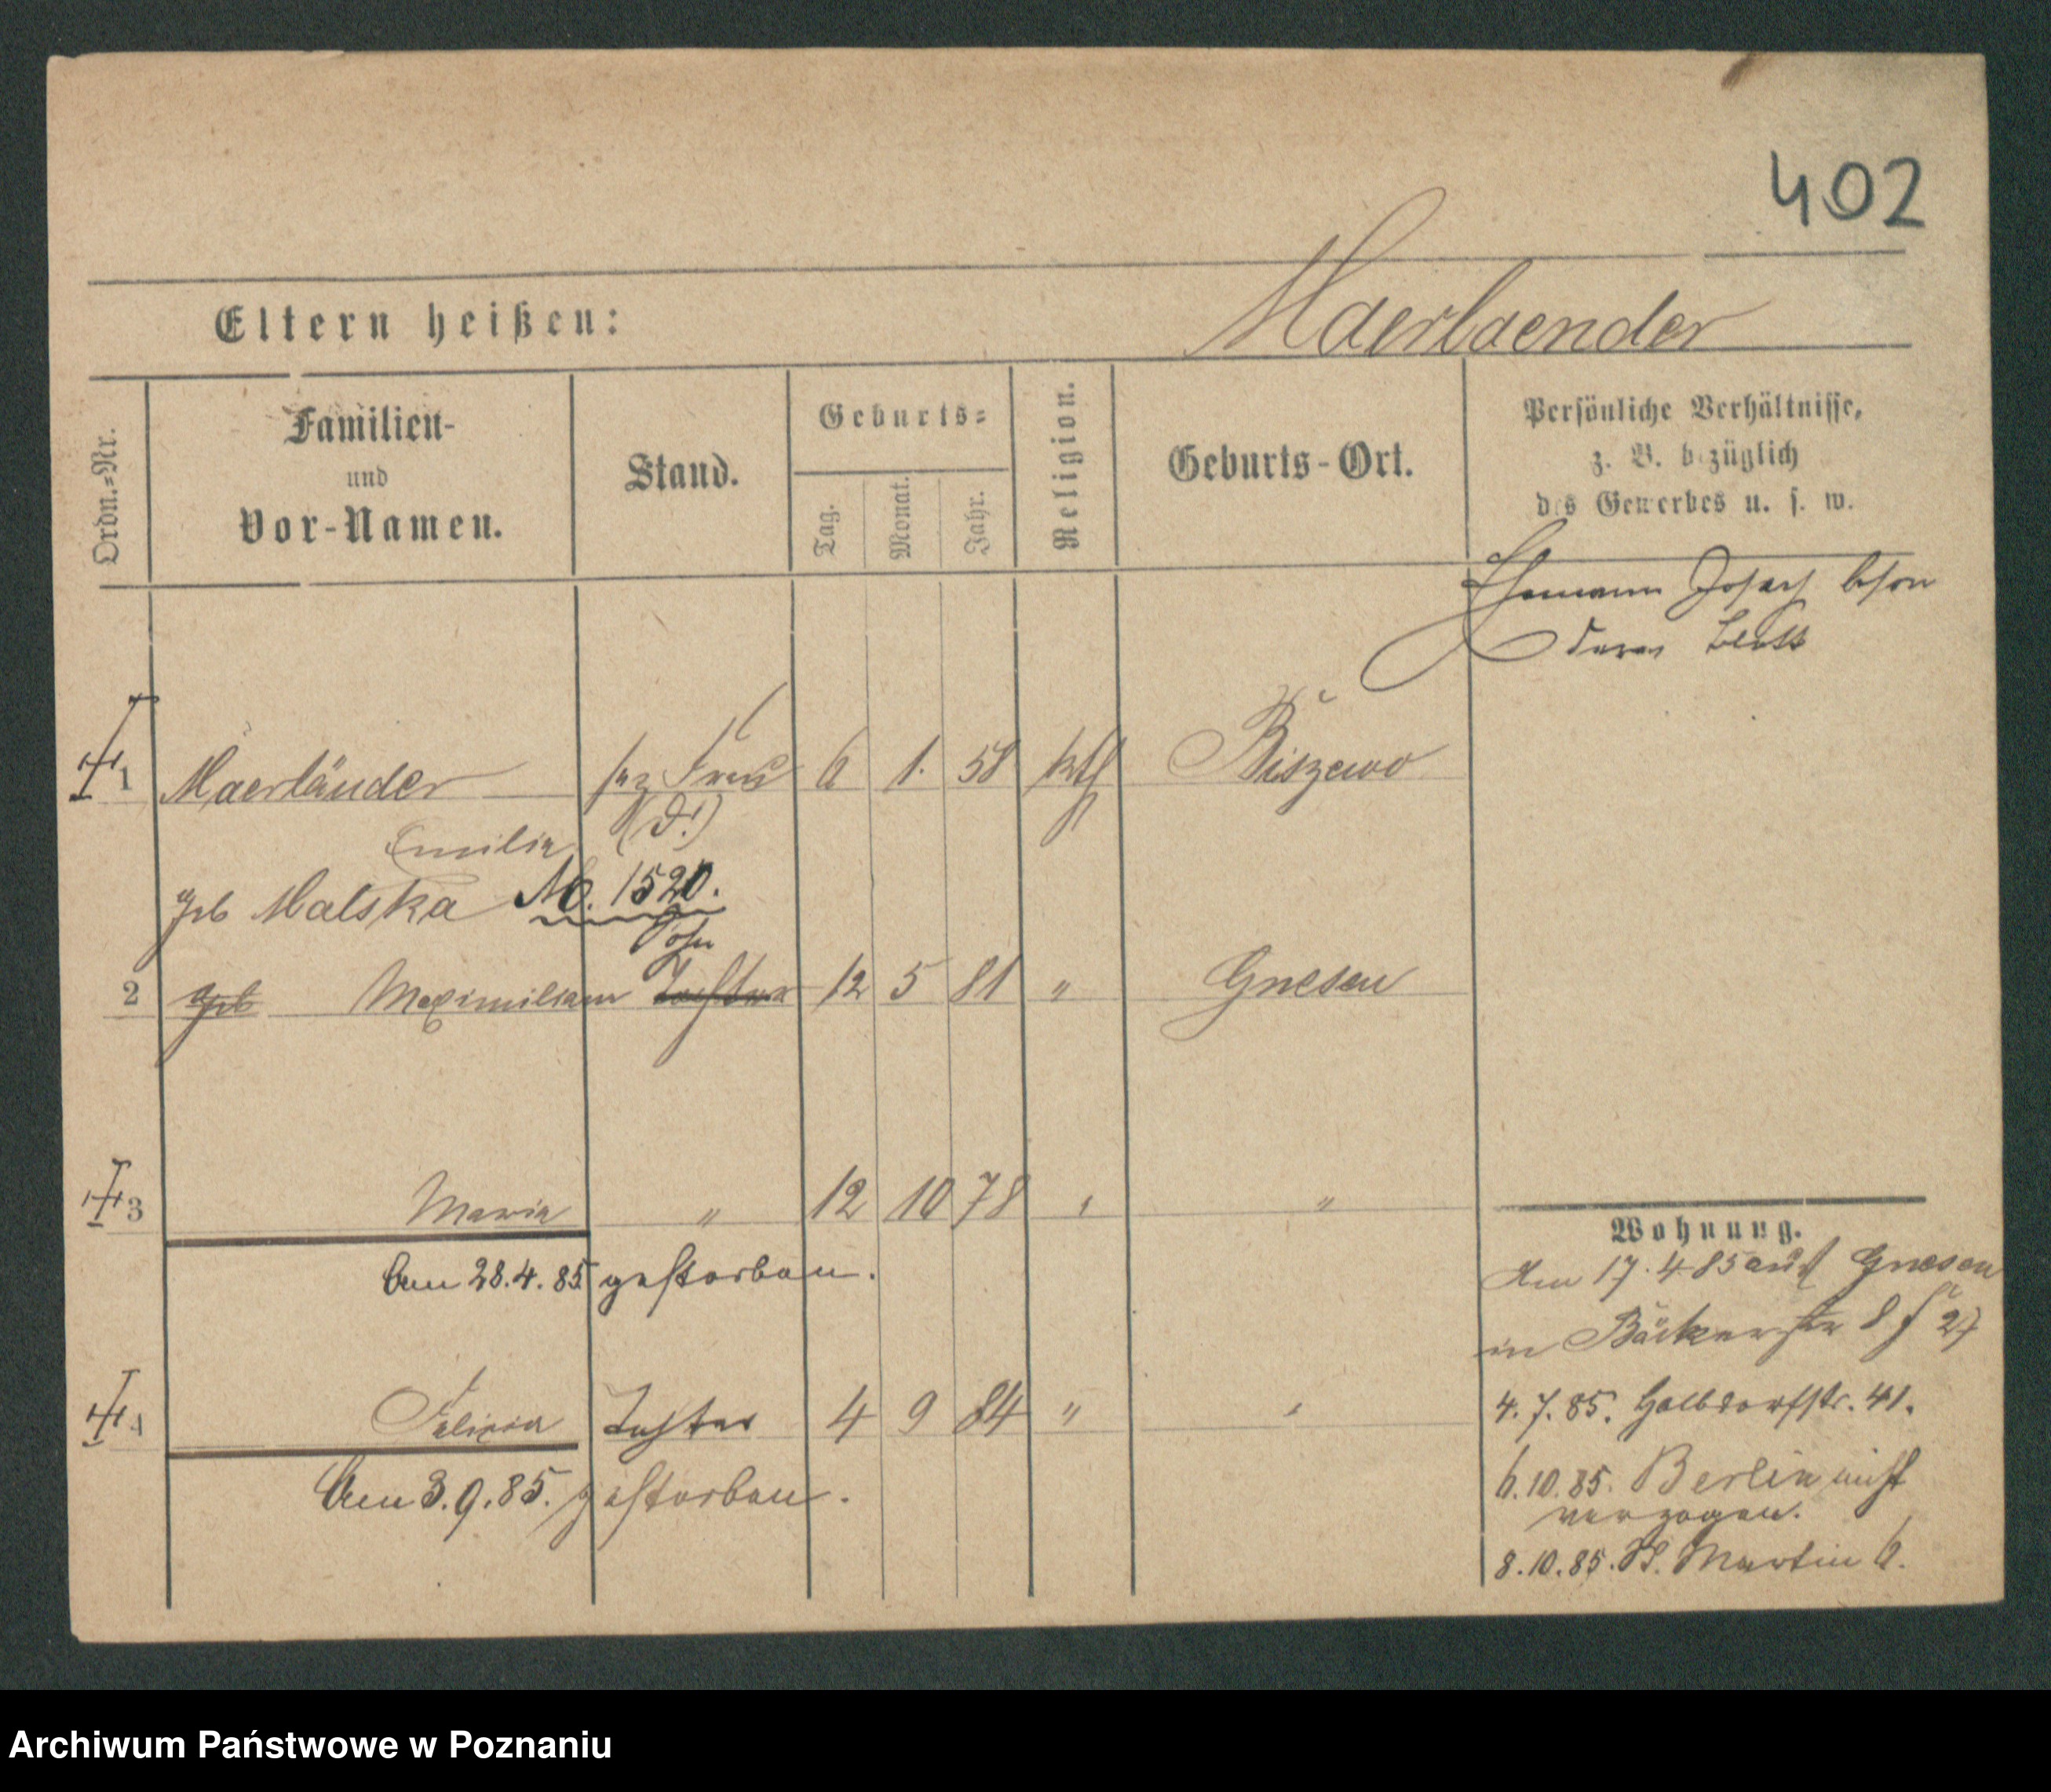 402
Eltern heißen:
Maerlaender
Ordn.-Nr.
Familien-
und
Vor-Namen.
Stand.
Geburts-
Tag.
Monat.
Jahr.
Religion.
Geburts-Ort.
Persönliche Verhältnisse,
z. B. bezüglich
des Gewerbes u. s. w.
Ehemann Josef
1 Maerländer Frau 6 1. 58 kth Biszewo
Emilie
geb Malska No. 1520.
Sohn
2 geb Maximilian Tochter 12 5 81 " Gnesen
3 Maria " 12 10 78 " "
Am 28.4.85 gestorben.
4 Felicia Tochter 4 9 84 " "
Am 3.9.85. gestorben.
Wohnung.
Am 17.4 85 aus Gnesen
in Bäckerstr 8
4.7.85. Halbdorfstr. 41.
6.10.85. Berlin nicht
verzogen.
8.10.85. St. Martin 6.
Archiwum Państwowe w Poznaniu